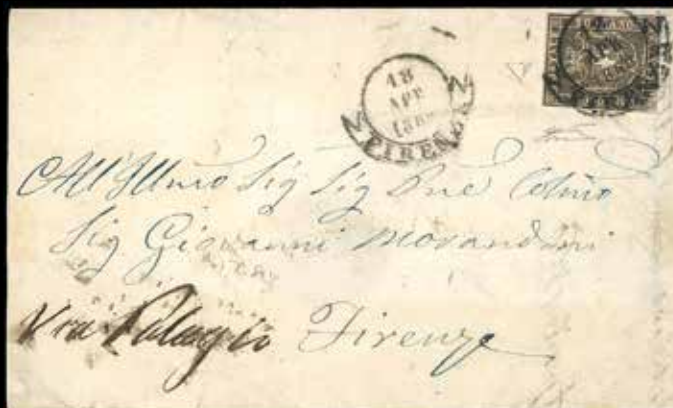 18
APR
FIRENZE
All'Illmo Sig Sig Pne Colmo
Sig Giovanni Morandini
Via Palagio Firenze